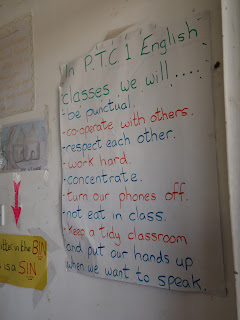 In P.T.C 1 English
classes we will.....
- be punctual.
- co-operate with others.
- respect each other.
- work hard.
- concentrate.
- turn our phones off.
- not eat in class.
- keep a tidy classroom
and put our hands up
when we want to speak.
litter in the BIN
is a SIN